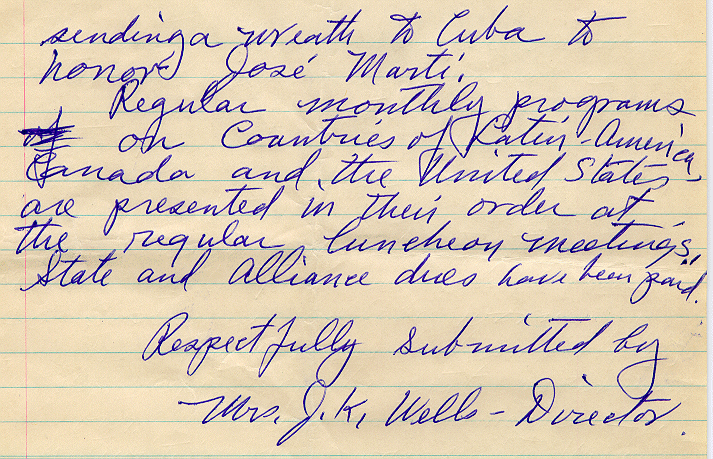 sending a wreath to Cuba to
honor José Martí.
Regular monthly programs
on Countries of Latin-America,
Canada and the United States
are presented in their order at
the regular luncheon meetings.
State and Alliance dues have been paid.
Respectfully submitted by
Mrs. J. K. Wells - Director.